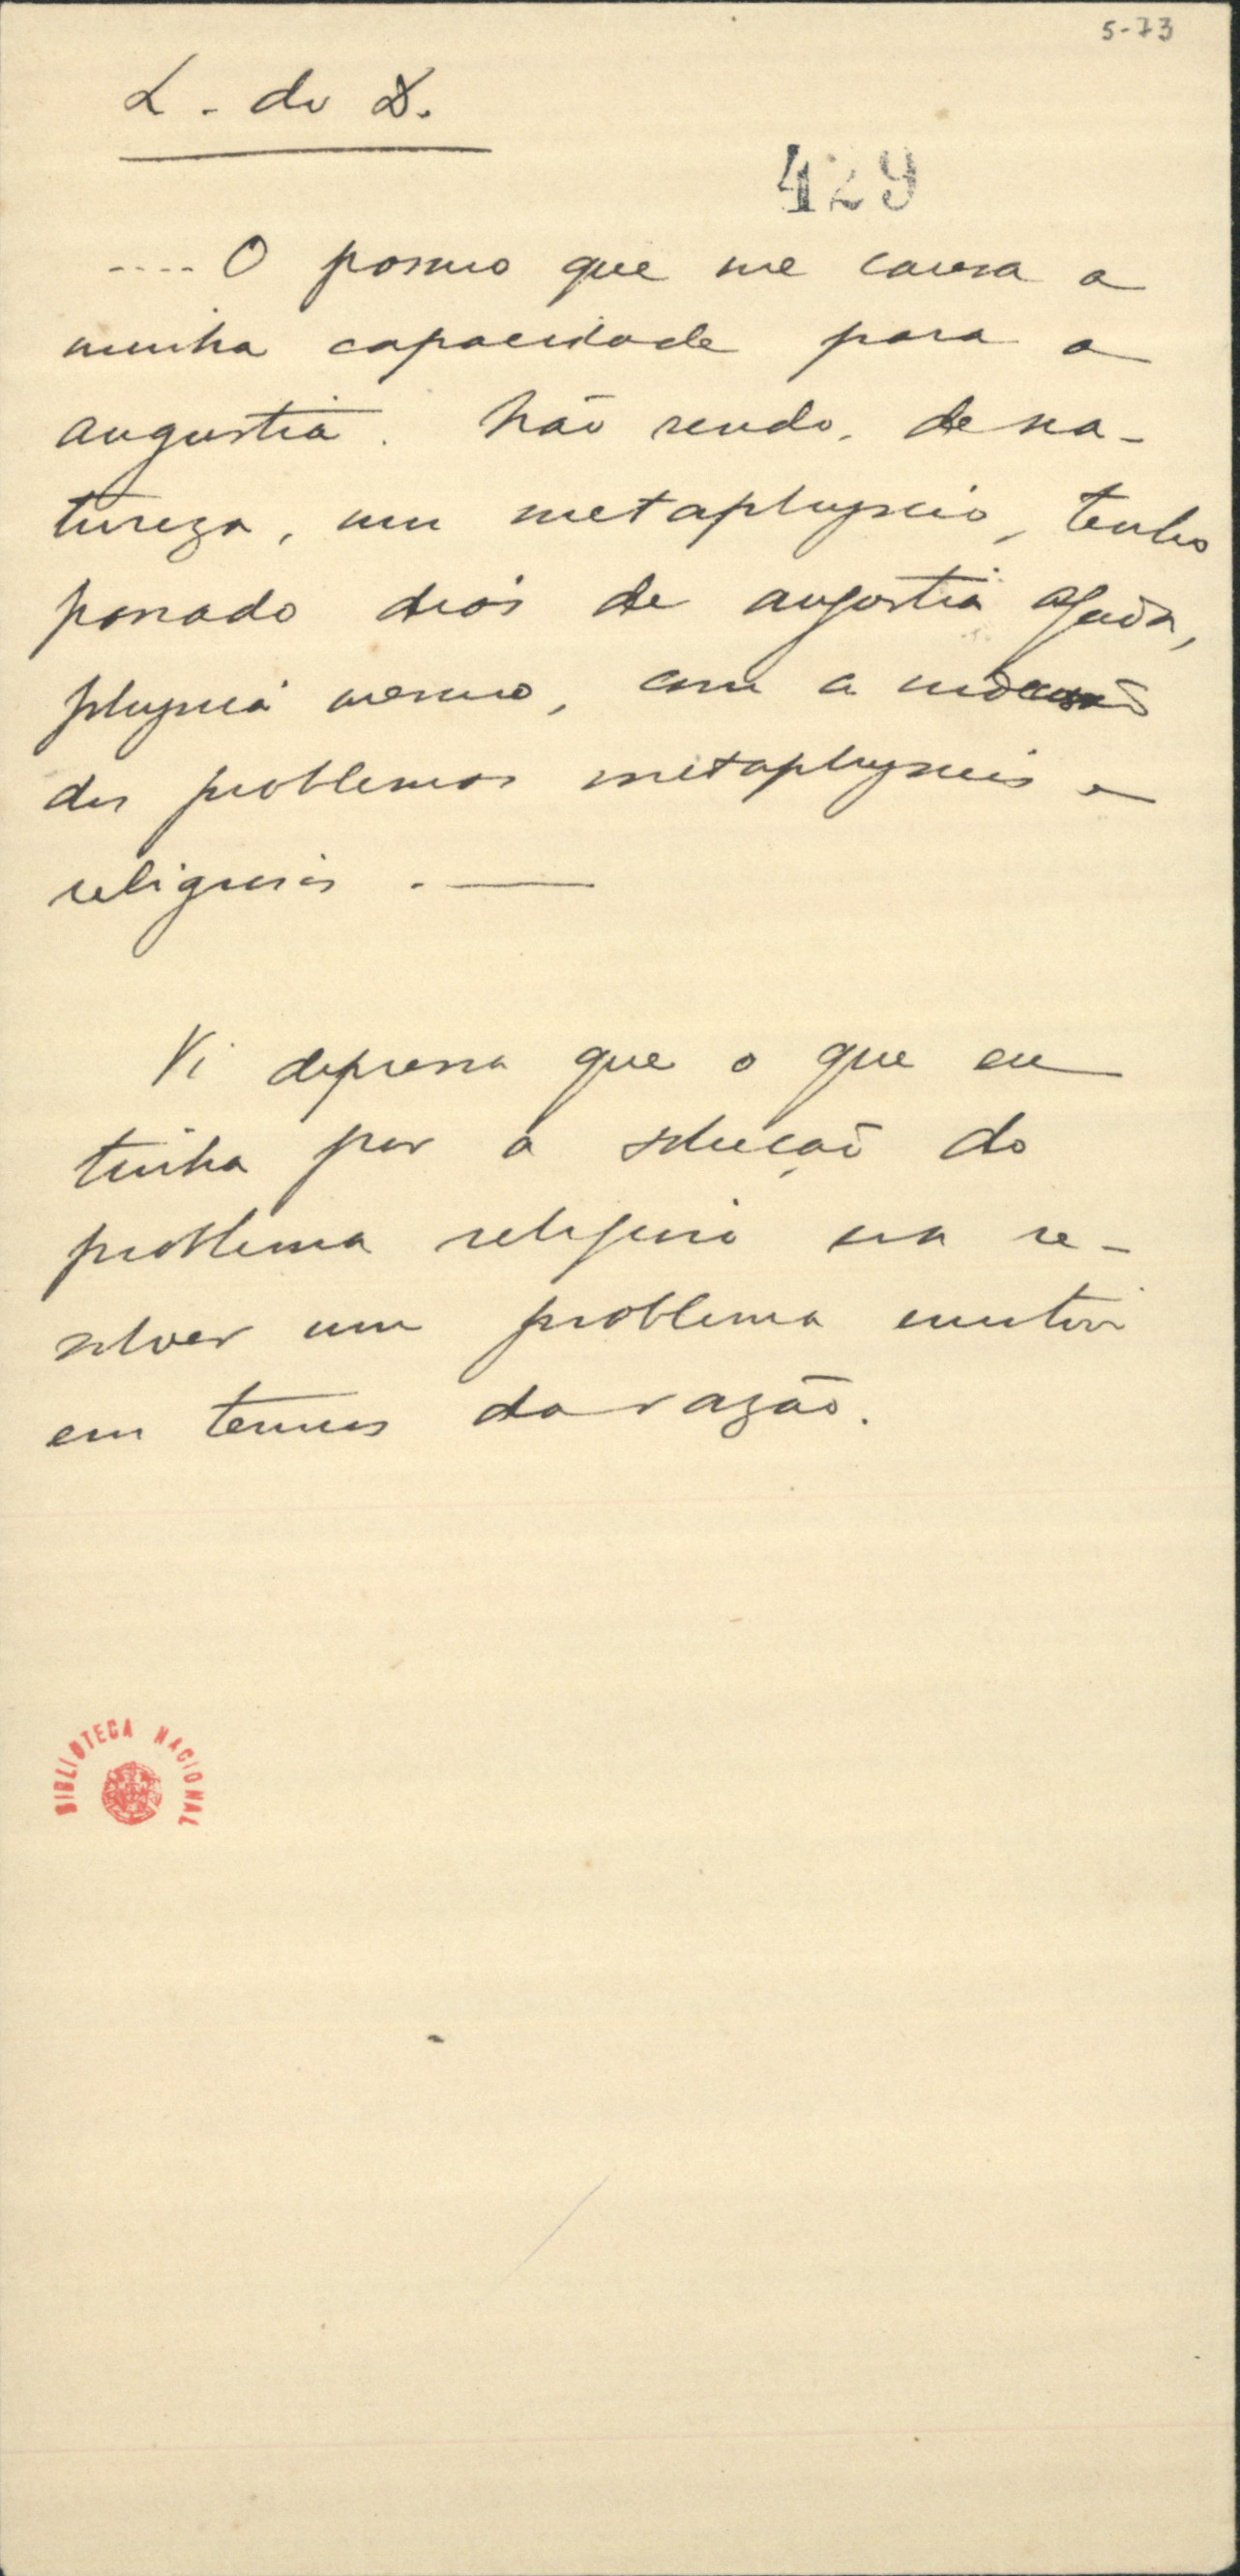 5-73
L. do D.
429
.... O pasmo que me causa a
minha capacidade para a
angustia. Não sendo, de na-
tureza, um metaphysico, tenho
passado dias de angustia aguda,
physica mesmo, com a indecisão
dos problemas metaphysicos e
religiosos. —
Vi depressa que o que eu
tinha por a solução do
problema religioso era re-
solver um problema emotivo
em termos da razão.
BIBLIOTECA NACIONAL